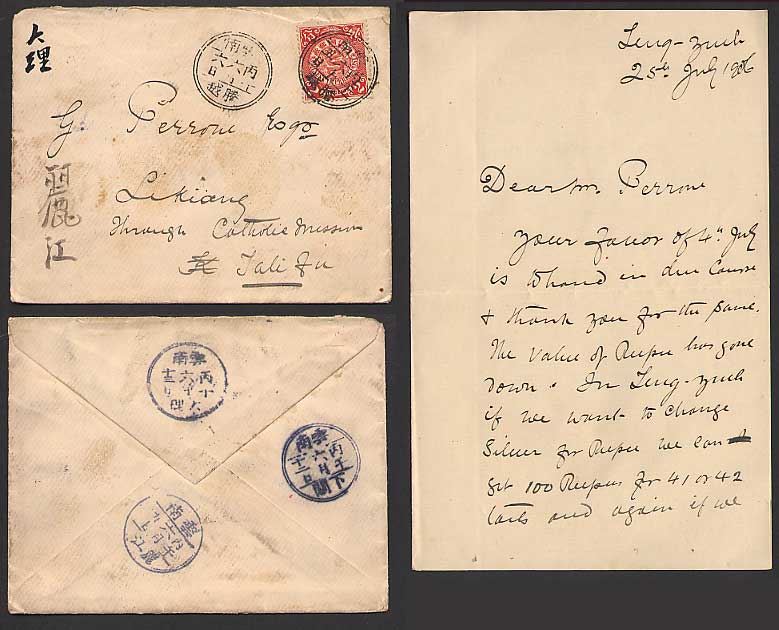 大理
G. Perrone Esqre
Likiang
Through Catholic Mission
Tali Fu
麗江
南雲
丙
六
越騰
南雲
丙午
六月
關下
南雲
丙午
江麗
Teng-yueh
25th July 1906
Dear Mr. Perrone
your favor of 4th July
is to hand in due Course
& thank you for the same.
The value of Rupee has gone
down. In Teng-yueh
if we want to change
Silver for Rupee we can
get 100 Rupees for 41 or 42
taels and again if we